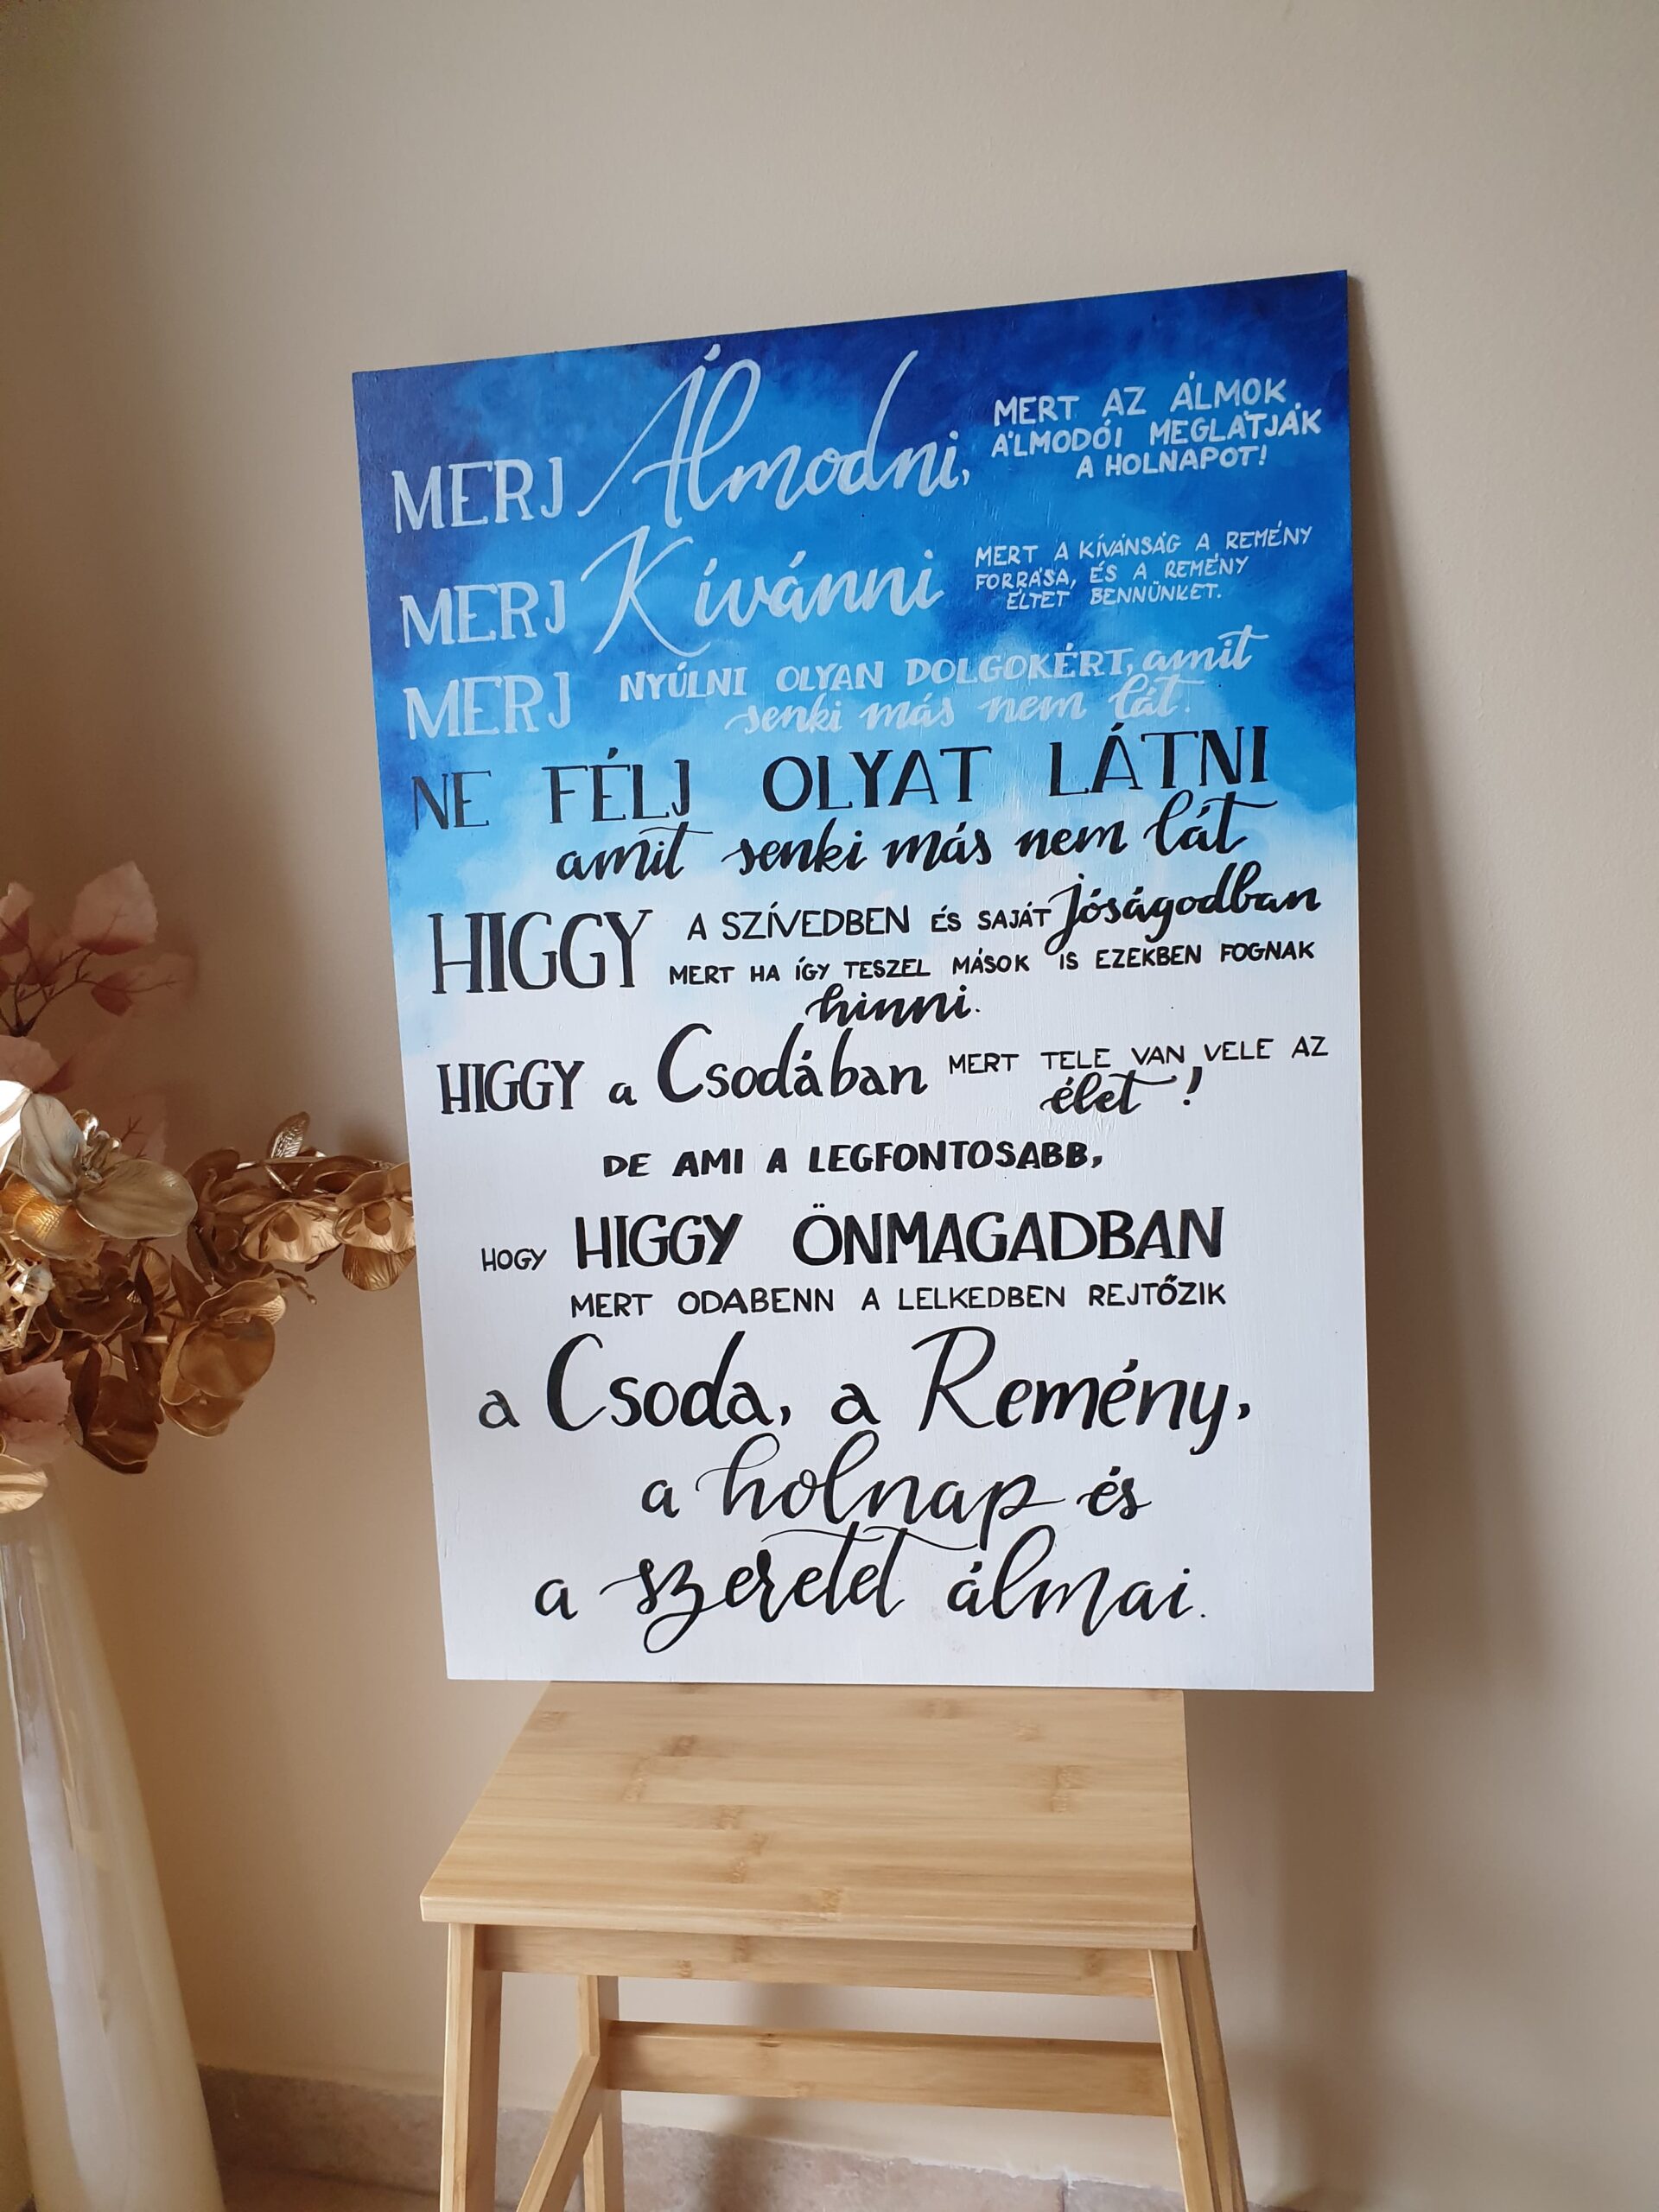 MERJ Álmodni, MERT AZ ÁLMOK
ÁLMODÓI MEGLÁTJÁK
A HOLNAPOT!
MERJ Kívánni MERT A KÍVÁNSÁG A REMÉNY
FORRÁSA, ÉS A REMÉNY
ÉLTET BENNÜNKET.
MERJ NYÚLNI OLYAN DOLGOKÉRT, amit
senki más nem lát.
NE FÉLJ OLYAT LÁTNI
amit senki más nem lát
HIGGY A SZÍVEDBEN ÉS SAJÁT Jóságodban
MERT HA ÍGY TESZEL MÁSOK IS EZEKBEN FOGNAK
hinni.
HIGGY a Csodában MERT TELE VAN VELE AZ
élet!
DE AMI A LEGFONTOSABB,
HOGY HIGGY ÖNMAGADBAN
MERT ODABENN A LELKEDBEN REJTŐZIK
a Csoda, a Remény,
a holnap és
a szeretet álmai.